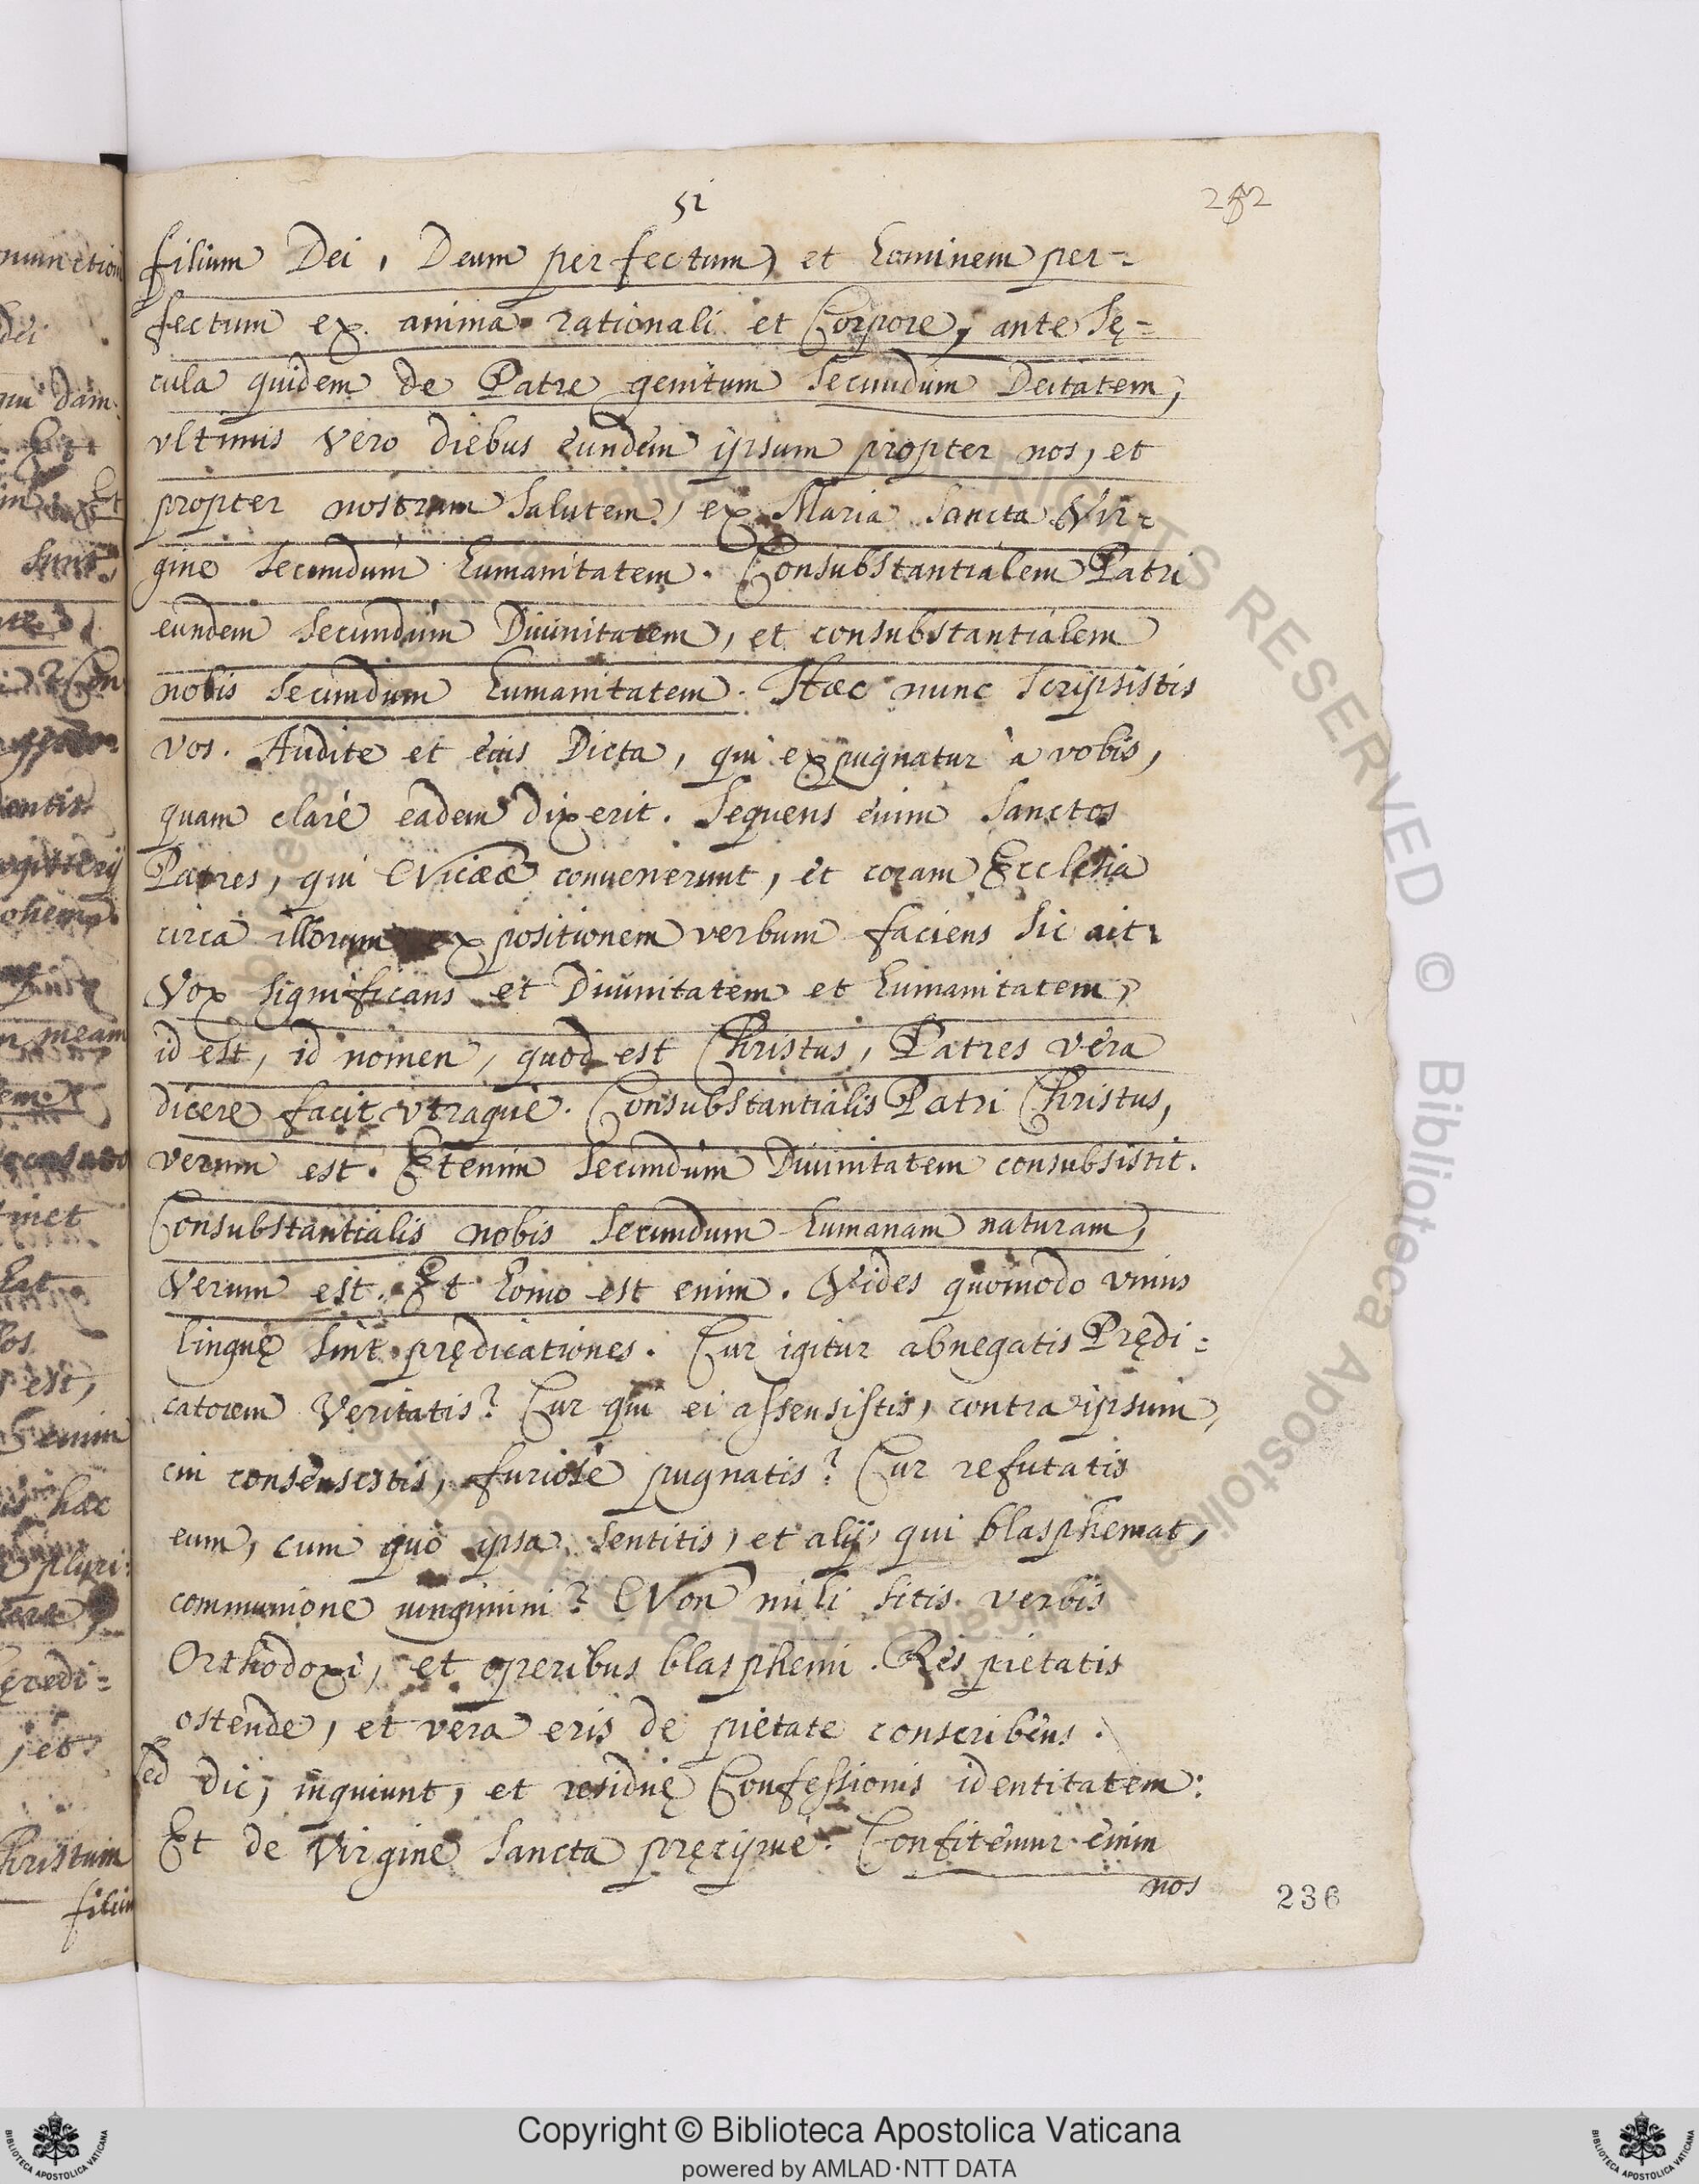 51
252
filium Dei, Deum perfectum, et hominem per=
fectum ex anima rationali et Corpore, ante sę=
cula quidem de Patre genitum secundum Deitatem,
vltimis vero diebus eundem ipsum propter nos, et
propter nostram salutem, ex Maria sancta Vir=
gine secundum humanitatem. Consubstantialem Patri
eundem secundum Diuinitatem, et consubstantialem
nobis secundum humanitatem. Hæc nunc scripsistis
vos. Audite et eius Dicta, qui expugnatur à vobis,
quam clarè eadem dixerit. Sequens enim sanctos
Patres, qui Nicææ conuenerunt, et coram Ecclesia
circa illorum expositionem verbum faciens sic ait:
Vox significans et Diuinitatem et humanitatem,
id est, id nomen, quod est Christus, Patres vera
dicere facit vtraque. Consubstantialis Patri Christus,
verum est. Etenim secundum Diuinitatem consubsistit.
Consubstantialis nobis secundum humanam naturam,
Verum est. Et homo est enim. Vides quomodo vnius
linguę sint prędicationes. Cur igitur abnegatis Prędi=
catorem Veritatis? Cur qui ei assensistis, contra ipsum,
cui consensistis, furiosè pugnatis? Cur refutatis
eum, cum quo ipsa sentitis, et alij, qui blasphemat,
communione iungimini? Non mihi sitis verbis
Orthodoxi, et operibus blasphemi. Res pietatis
ostende, et vera eris de pietate conscribens.
Sed dic, inquiunt, et residuę Confessionis identitatem:
Et de Virgine sancta pręcipuè. Confitemur enim
nos
236
Copyright © Biblioteca Apostolica Vaticana
powered by AMLAD·NTT DATA